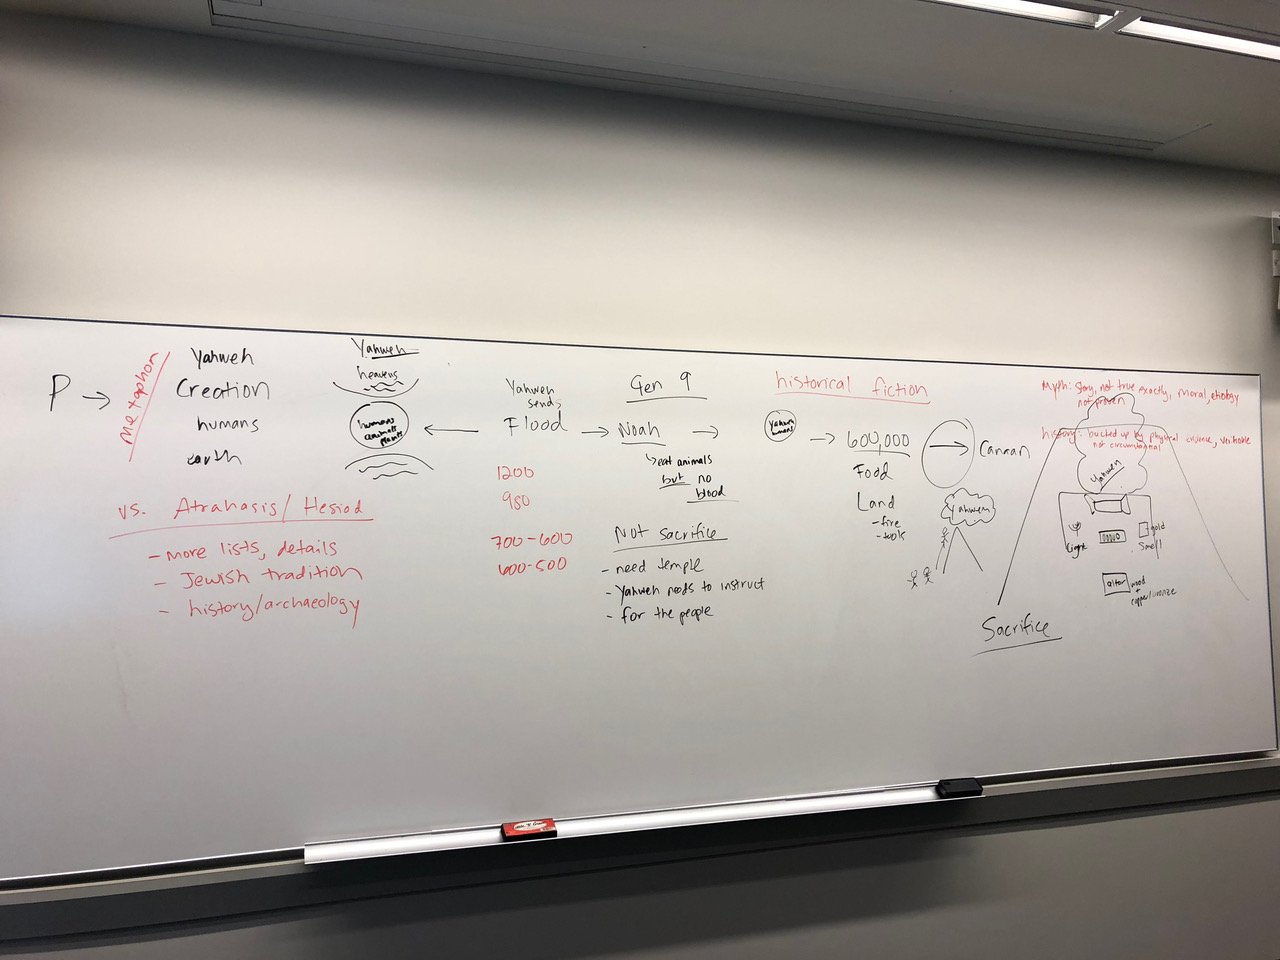 P →
metaphor
Yahweh
Creation
humans
earth
Yahweh
heavens
humans
animals
plants
vs. Atrahasis/Hesiod
- more lists, details
- Jewish tradition
- history/archaeology
Yahweh
sends
Flood
1200
980
700-600
600-500
Gen 9
Noah
eat animals
but no
blood
Not sacrifice
- need temple
- Yahweh needs to instruct
- for the people
historical fiction
Yahweh
humans
600,000
Food
Land
- fire
- tools
Canaan
Yahweh
Sacrifice
myth: story, not true exactly, moral, etiology
not proven
history: backed up by physical evidence, verifiable
not circumstantial
Yahweh
light
gold
smell
altar
wood
+
copper/bronze